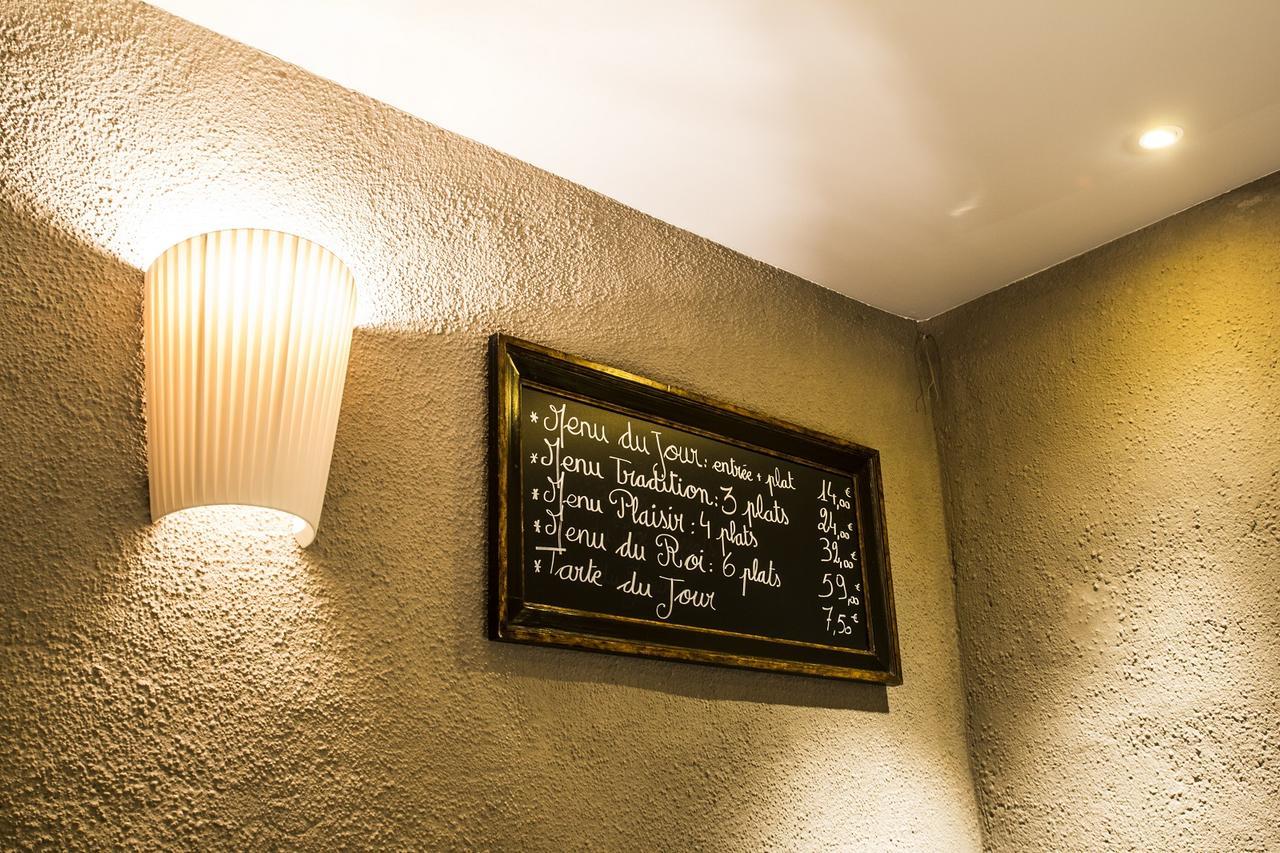 * Menu du Jour: entrée + plat 14,00€
* Menu Tradition: 3 plats 24,00€
* Menu Plaisir: 4 plats 32,00€
* Menu du Roi: 6 plats 59,00€
* Tarte du Jour 7,50€